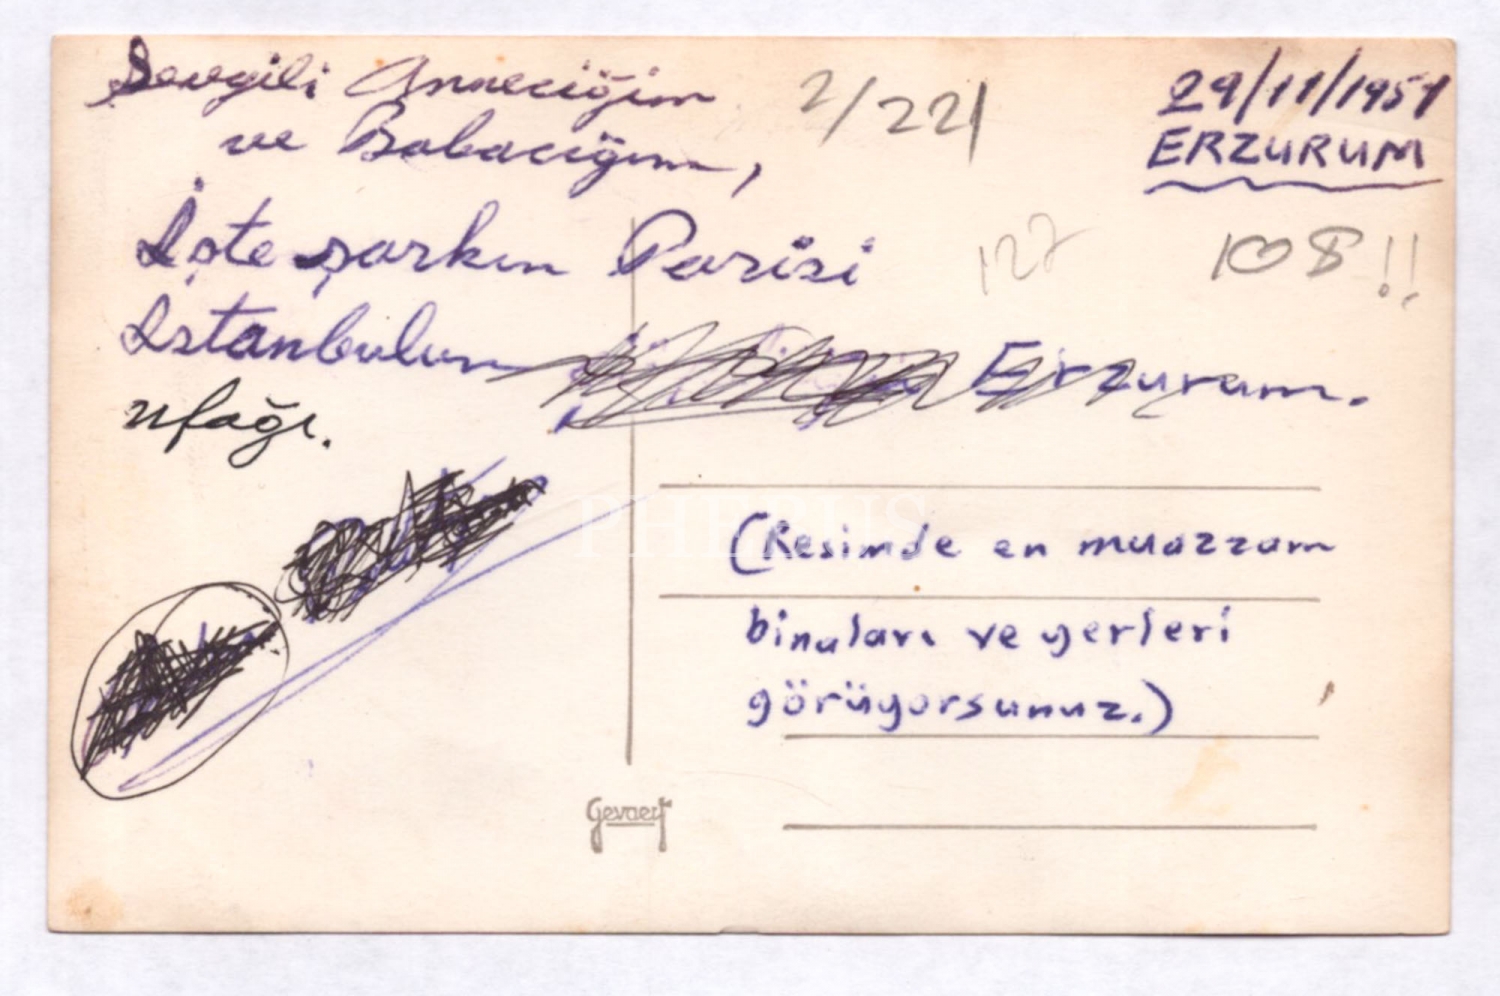 Sevgili Anneciğim
ve Babacığım,
2/221
29/11/1951
ERZURUM
İşte şarkın Parisi
127
108!!
İstanbulun Erzurum.
ufağı.
(Resimde en muazzam
binaları ve yerleri
görüyorsunuz.)
PHEBUS
Gevaert